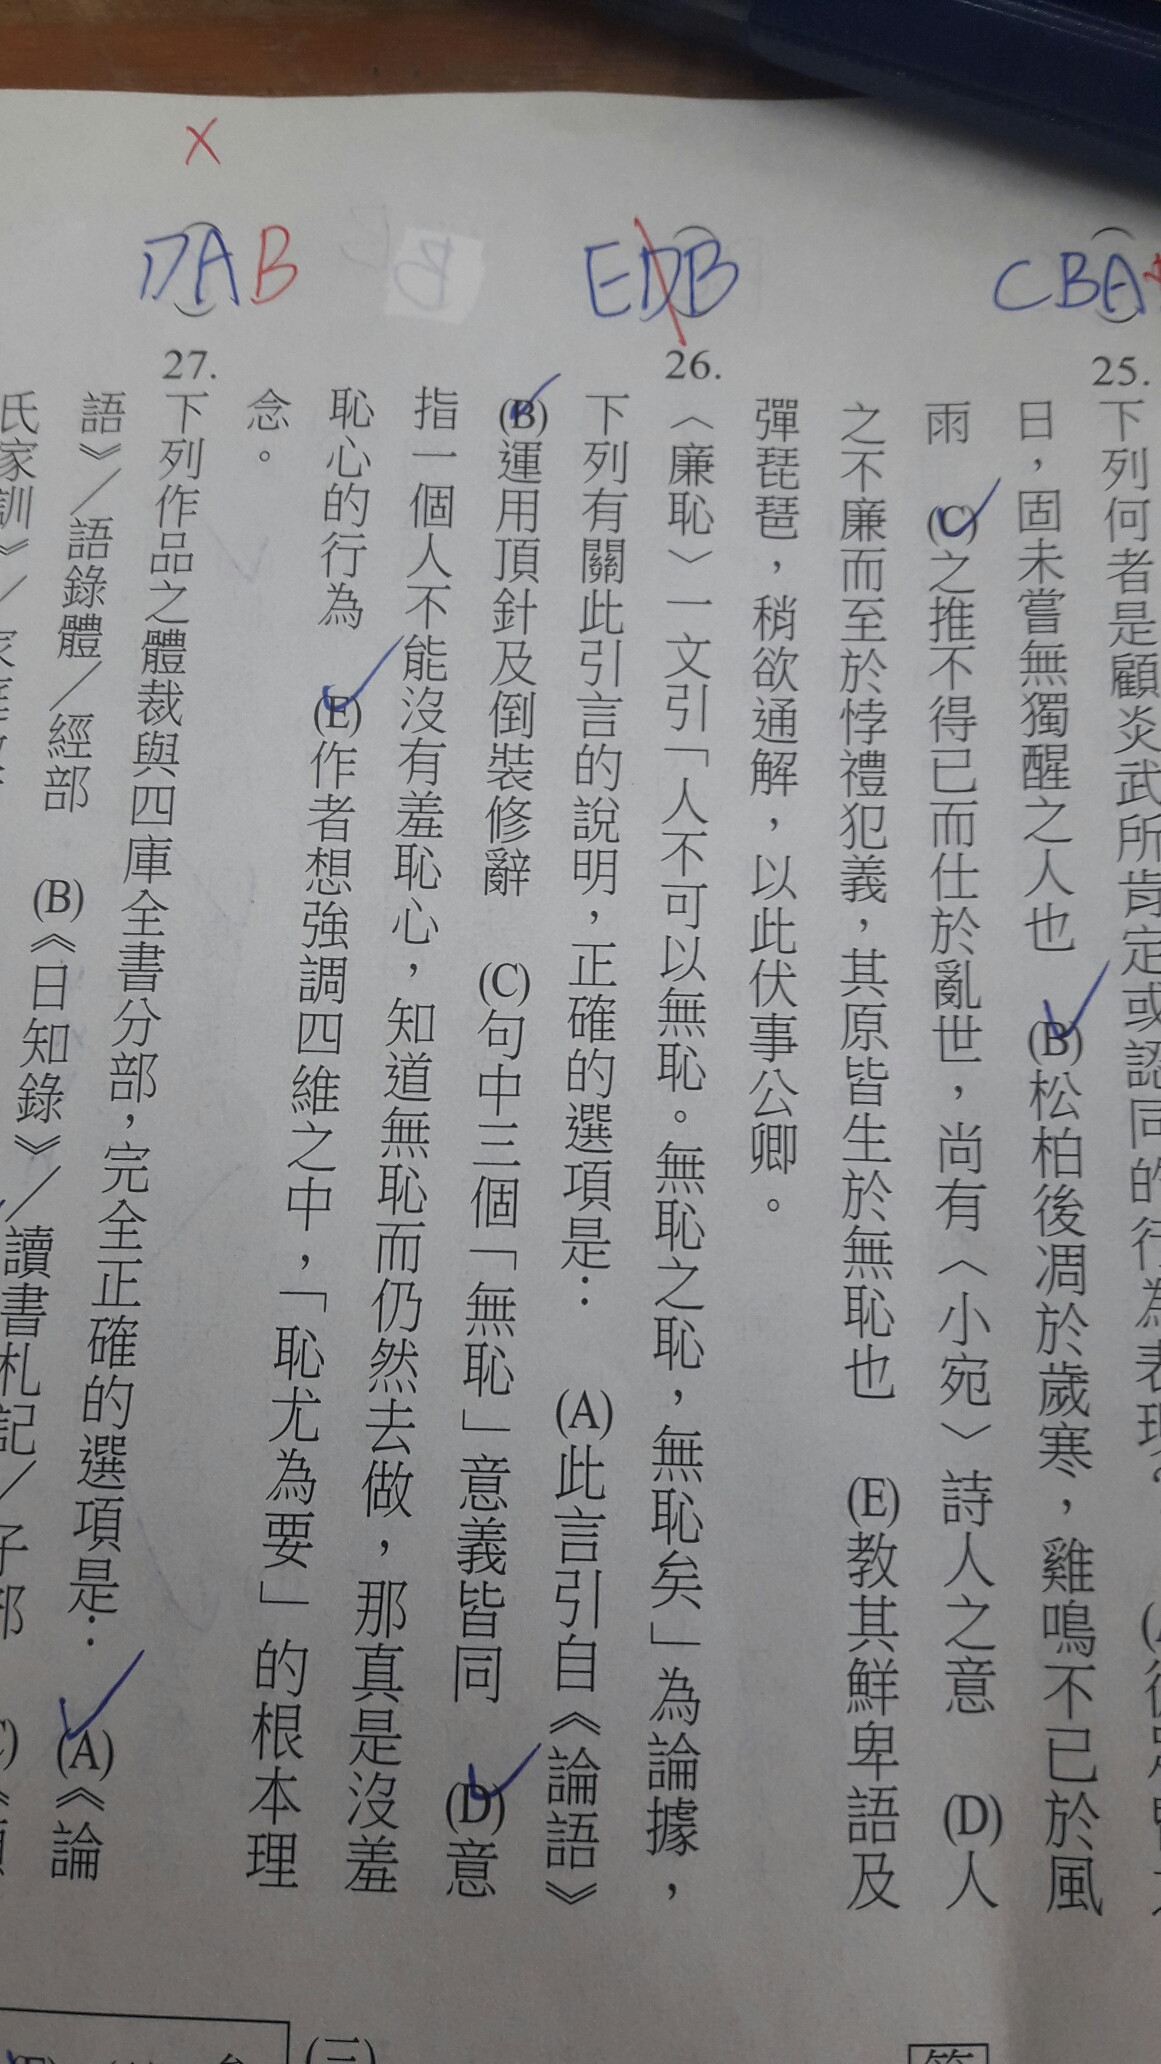 CBA
25.
下列何者是顧炎武所肯定或認同的行為表現
日，固未嘗無獨醒之人也　(B)松柏後凋於歲寒，雞鳴不已於風
雨　(C)之推不得已而仕於亂世，尚有〈小宛〉詩人之意　(D)人
之不廉而至於悖禮犯義，其原皆生於無恥也　(E)教其鮮卑語及
彈琵琶，稍欲通解，以此伏事公卿。
EDB
26.
〈廉恥〉一文引「人不可以無恥。無恥之恥，無恥矣」為論據，
下列有關此引言的說明，正確的選項是：　(A)此言引自《論語》
(B)運用頂針及倒裝修辭　(C)句中三個「無恥」意義皆同　(D)意
指一個人不能沒有羞恥心，知道無恥而仍然去做，那真是沒羞
恥心的行為　(E)作者想強調四維之中，「恥尤為要」的根本理
念。
DAB
27.
下列作品之體裁與四庫全書分部，完全正確的選項是：　(A)《論
語》／語錄體／經部　(B)《日知錄》／讀書札記／子部　(C)《顏
氏家訓》／
(三)